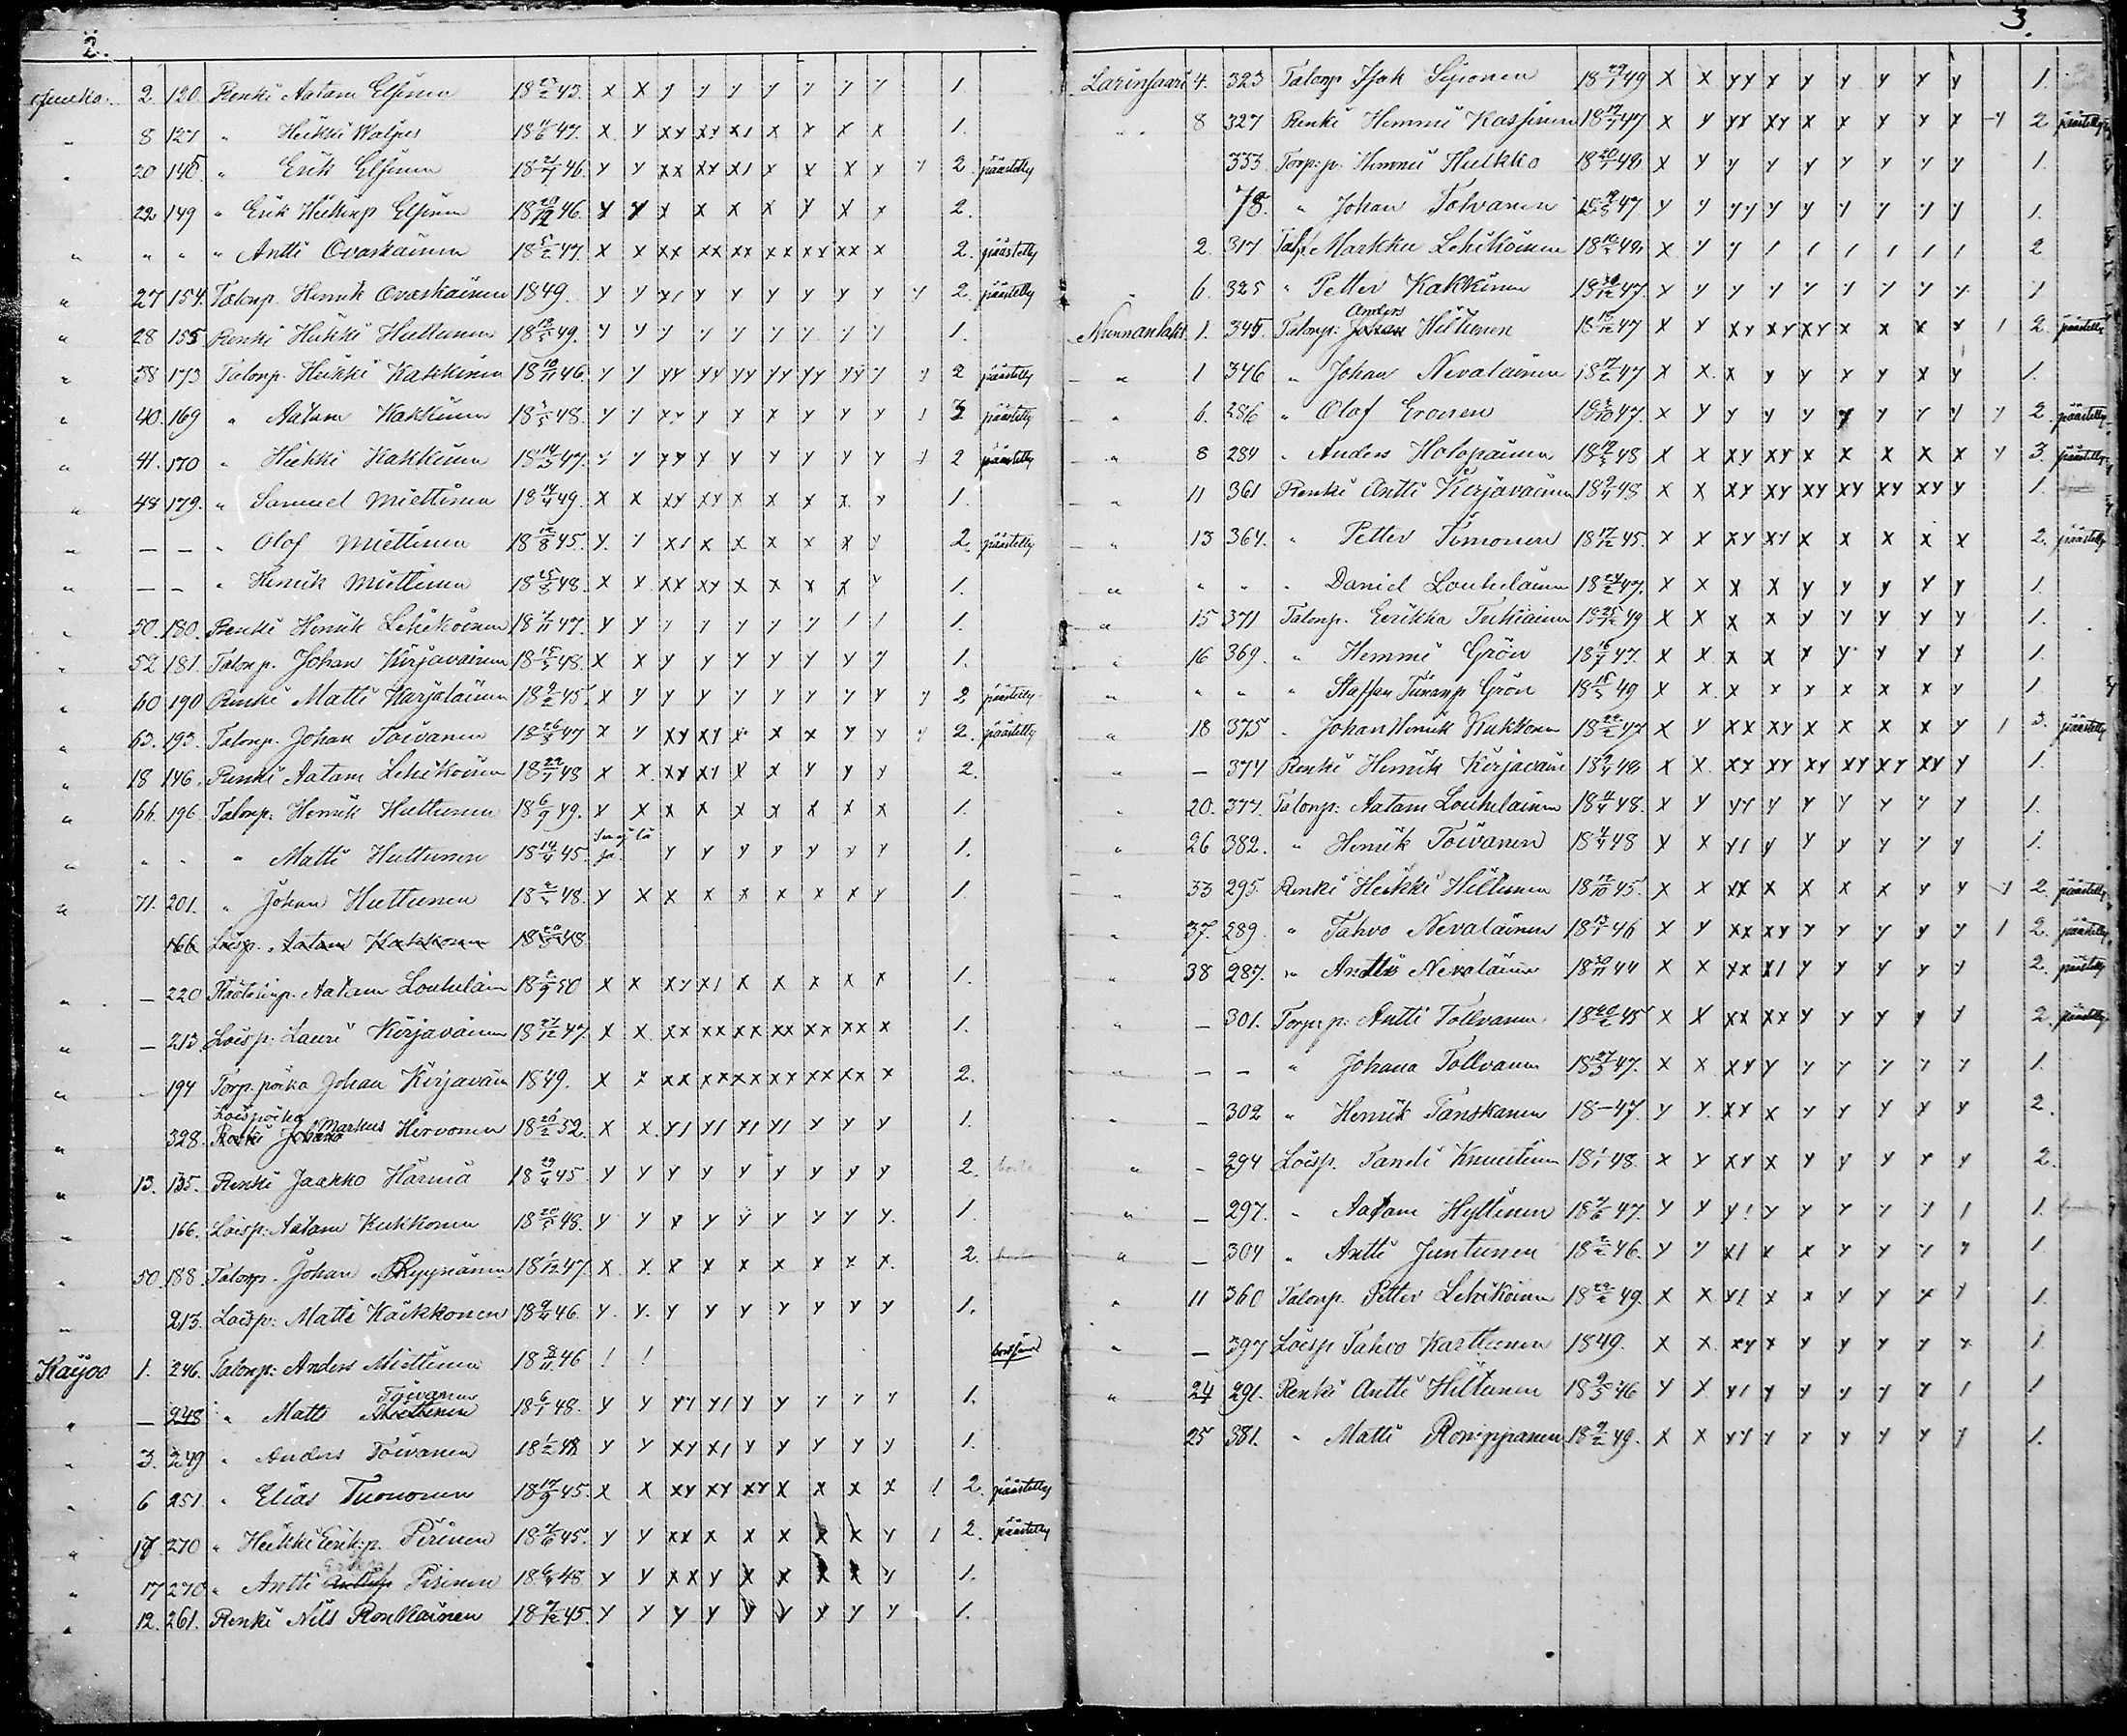 2.
2. 120. Renki Aatam Elfinen 18 43. x x y y y y y y y 1.
" 8 127 " Heikki Walpes 18 47. x y xy xy x1 x y x x 1.
" 20 145. " Erik Elfinen 18 46. y y xx xy x1 x y x y y 2. päästetty
" 22 149 " Erik Heikinp Elfinen 18 29/12 46. y y y x x x y x x 2.
" " " " Antti Ovaskainen 18 5/2 47. x x xx xx xx xx xx xx x 2. päästetty
" 27 154. Talonp. Henrik Ovaskainen 1849. y y y1 y y y y y y y 2. päästetty
" 28 155 Renki Heikki Huttunen 18 49. y y y y y y y y y 1.
" 38 173 Talonp. Heikki Kakkinen 18 10/11 46. y y yy yy yy yy yy yy y y 2 päästetty
" 40. 169 " Aatam Kakkinen 18 48. y y xy y y x x y y 1 3 päästetty
" 41. 170 " Heikki Kakkinen 18 14/3 47. y y yy y y y y y y 1 2 päästetty
" 48 179. " Samuel Miettinen 18 14/4 49. x x xy xy x x x x y 1.
" — — " Olof Miettinen 18 12/8 45. y. y x1 x x x x x y 2. päästetty
" — — " Henrik Miettinen 18 25/8 48. x x xx xy x x x x y 1.
" 50. 180. Renki Henrik Lehikoinen 18 7/11 47. y y y y y y y 1 1 1.
" 52 181. Talonp. Johan Kirjavainen 18 15/5 48. x x y y y y y y y 1.
" 60 190 Renki Matti Karjalainen 18 9/2 45. x y y y y y y y y y 2 päästetty
" 63. 193. Talonp. Johan Toivanen 18 26/3 47 x y xy xy x x x y y y 2. päästetty
" 18 146. Renki Aatam Lehikoinen 18 22/1 48 x x. xy x1 y x y y y 2.
" 66. 196. Talonp: Henrik Huttunen 18 6/9 49. y x x x x x x x x 1.
" " " " Matti Huttunen 18 14/4 45. y y y y y y y 1.
" 71. 201. " Johan Huttunen 18 48. y x x x x x x x y 1.
166 Loisp. Aatam Kukkonen 18 20/5 48
" — 220 Aatam Louhelain 18 9/9 50 x x xy x1 x x x x x 1.
" — 213 Loisp: Lauri Kirjavainen 18 27/12 47. x x xx xx xx xx xx xx x 1.
" — 194 Torp. poika Johan Kirjavain 1849. x x xx xx xx xx xx xx x 2.
" 328. Loispoika Renki Johana Markus Hirvonen 18 26/2 52. x x y1 y1 y1 y1 y y y 1.
" 13. 135. Renki Jaakko Härmä 18 29/4 45. y y y y y y y y y 2.
" 166. Loisp: Aatam Kukkonen 18 20/5 48. y y y y y y y y y. 1.
" 50. 188. Talonp. Johan Ryynänen 18 1/12 47 x x. x x x x x x x. 2.
" 213. Loisp: Matti Kaikkonen 18 9/4 46. y y. y y y y y y y 1.
Kayoo 1. 246. Talonp: Anders Miettinen 18 8/11 46 ! !
" — 248 " Matts Miettinen Toivanen 18 6/1 48. y y yy y1 y y y y y 1.
" 3. 249 " Anders Toivanen 18 1/2 48 y y xy x1 y y y y y 1.
" 6 251. " Elias Tuononen 18 17/9 45. x x xy xy xy x x x x 1 2. päästetty
" 17. 270 " Heikki Erik:p. Pirinen 18 7/6 45. y y xx x x x x x y 1 2. päästetty
" 17 270 " Antti Anttip Pirinen 18 6/4 48 y y xx y x x x x y 1.
" 12. 261. Renki Nils Ronkainen 18 7/12 45. y y y y y y y y y 1.
3.
Larinsaari 4. 323 Talonp Isak Sijvonen 18 29/1 49 x x yy x y y y y y 1.
" 8 327 Renki Hemmi Kassinen 18 17/7 47 x y yx xy x x y y x y 2 päästetty
333 Torp:p. Hemmi Hulkko 18 20/1 48 x y y y y y y y y 1.
78. " Johan Tolvanen 18 19/5 47 y y yy y y y y y y 1.
2. 317 Talp. Markku Lehikoinen 18 48. x y y 1 1 1 1 1 1 2
" 6. 325 " Petter Kakkinen 18 30/12 47. x y y y y y y y y 1
Nunnanlaks 1. 345. Talonp: Johan Anders Hiltunen 18 15/12 47 x y xy xy xy x x x y 1 2. päästetty
" 1 346 " Johan Nevalainen 18 17/2 47 x x x y y y y x y 1.
" 6. 286 " Olof Eronen 18 10 47. x y y y y y y y y y 2 päästetty
" 8 284 " Anders Holopainen 18 19/5 48 x x xy xy x x x x x y 3. päästetty
" 11 361 Renki Antti Kirjavainen 18 9/4 48 x x xy xy xy xy xy xy y 1.
" 13 364. " Petter Timonen 18 17/12 45. x x xy xy x x x x x 2. päästetty
" " " " Daniel Louhelainen 18 24/2 47. x x x x y y y y y 1.
" 15 371 Talonp. Eerikka Turkiainen 18 25/12 49 x x x x y y y y y 1.
" 16 369. " Hemmi Grön 18 16/7 47. x x x x y y. y y y 1.
" " " " Staffan Grön 18 15/5 49 x x. x x x x x x y 1
" 18 375 " Johan Henrik Kukkonen 18 22/2 47 x y xx xy x x x x y 1 3. päästetty
" — 374 Renki Henrik Kirjavain 18 9/4 48 x x xx xy xy xy xy xy y 1.
" 20. 377. Talonp: Aatam Louhelainen 18 11/4 48. x y yy y y y y y y 1.
" 26 382. " Henrik Toivanen 18 4/4 48 y x y1 y y y y y y 1.
" 33 295. Renki Heikki Hiltunen 18 12/10 45. x x xx x x x x y y y 2. päästetty
" 37. 289. " Tahvo Nevalainen 18 13/1 46 x y xx xy y y y y y 1 2. päästetty
" 38 287. " Antti Nevalainen 18 30/11 44 x x yx x1 y y y y y 2. päästetty
" — 301. Torp:p: Antti Tollvanen 18 20/2 45 x x xx xx y y y y y 2. päästetty
" — — " Johana Tollvanen 18 27/3 47. x x xy y y y y y y 1.
" — 302 " Henrik Tanskanen 18—47. y y xx x y y y y y 2.
" — 294 Loisp. Taneli Knuutinen 18 1/1 48. x y xy x y y y y y 2.
" — 297. " Aatam Hyttinen 18 7/6 47. y y y! y y y y y 1 1.
" — 304 " Antti Juntunen 18 46. y y x1 x x y y y y 1
" 11 360 Talonp. Petter Lehikoinen 18 22/2 49. x x y1 x x y y y y 1.
" — 397 Loisp Tahvo Karttunen 1849. x x xy x y y y y x 1
" 24 291. Renki Antti Hiltunen 18 9/3 46 y x y1 y y y y y 1 1
25 381. " Matti Romppanen 18 9/2 49. x x yy y y y y y y 1.